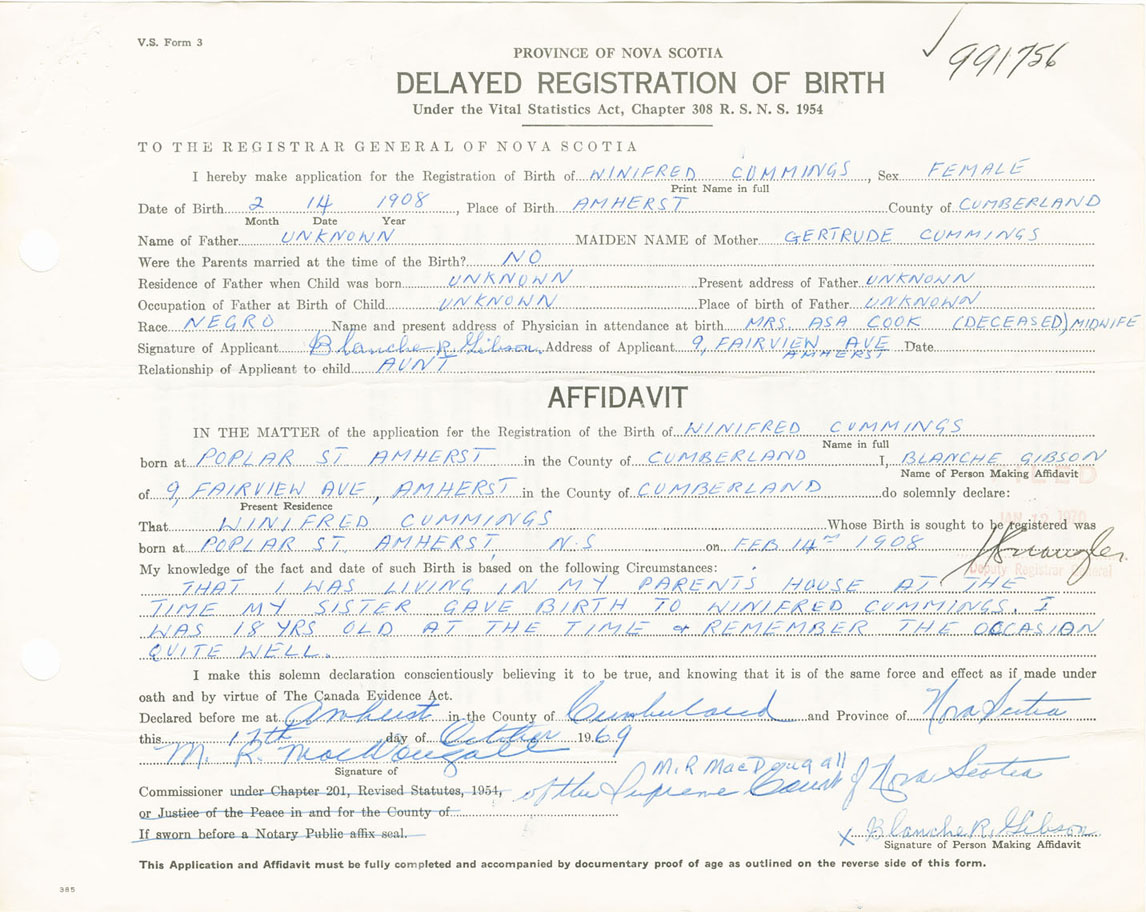 V.S. Form 3
991756
PROVINCE OF NOVA SCOTIA
DELAYED REGISTRATION OF BIRTH
Under the Vital Statistics Act, Chapter 308 R. S. N. S. 1954
TO THE REGISTRAR GENERAL OF NOVA SCOTIA
I hereby make application for the Registration of Birth of WINIFRED CUMMINGS, Sex FEMALE
Print Name in full
Date of Birth 2 14 1908, Place of Birth AMHERST County of CUMBERLAND
Month Date Year
Name of Father UNKNOWN MAIDEN NAME of Mother GERTRUDE CUMMINGS
Were the Parents married at the time of the Birth? NO
Residence of Father when Child was born UNKNOWN Present address of Father UNKNOWN
Occupation of Father at Birth of Child UNKNOWN Place of birth of Father UNKNOWN
Race NEGRO Name and present address of Physician in attendance at birth MRS. ASA COOK (DECEASED) MIDWIFE
Signature of Applicant Blanche R. Gibson. Address of Applicant 9, FAIRVIEW AVE Date
AMHERST
Relationship of Applicant to child AUNT
AFFIDAVIT
IN THE MATTER of the application for the Registration of the Birth of WINIFRED CUMMINGS
Name in full
born at POPLAR ST AMHERST in the County of CUMBERLAND I, BLANCHE GIBSON
Name of Person Making Affidavit
of 9, FAIRVIEW AVE, AMHERST in the County of CUMBERLAND do solemnly declare:
Present Residence
That WINIFRED CUMMINGS Whose Birth is sought to be registered was
JAN 12 1970
born at POPLAR ST. AMHERST, N.S on FEB 14TH 1908
Deputy Registrar General
My knowledge of the fact and date of such Birth is based on the following Circumstances:
THAT I WAS LIVING IN MY PARENT'S HOUSE AT THE
TIME MY SISTER GAVE BIRTH TO WINIFRED CUMMINGS. I
WAS 18 YRS OLD AT THE TIME & REMEMBER THE OCCASION
QUITE WELL.
I make this solemn declaration conscientiously believing it to be true, and knowing that it is of the same force and effect as if made under
oath and by virtue of The Canada Evidence Act.
Declared before me at Amherst in the County of Cumberland and Province of Nova Scotia
this 17th day of October 1969
M. R. MacDougall
Signature of
M.R MacDougall
Commissioner under Chapter 201, Revised Statutes, 1954, of the Supreme Court of Nova Scotia
or Justice of the Peace in and for the County of
If sworn before a Notary Public affix seal.
X Blanche R. Gibson
Signature of Person Making Affidavit
This Application and Affidavit must be fully completed and accompanied by documentary proof of age as outlined on the reverse side of this form.
385